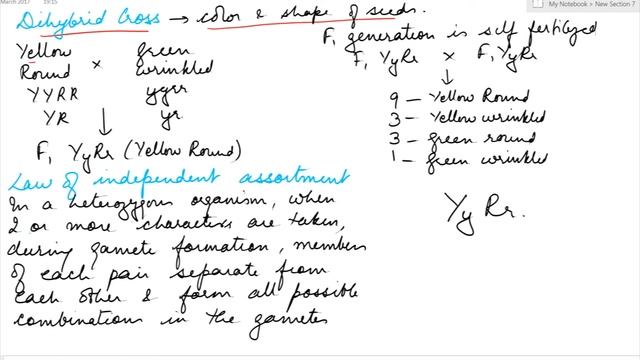 March 2017 19:15
My Notebook > New Section 7
Dihybrid Cross → color & shape of seeds.
Yellow green
Round × wrinkled
YYRR yyrr
YR yr
F1 YyRr (Yellow Round)
Law of independent assortment
In a heterozygous organism, when
2 or more characters are taken,
during gamete formation, members
of each pair separate from
each other & form all possible
combinations in the gametes
F1 generation is self fertilized
F1 YyRr × F1 YyRr
9 – Yellow Round
3 – Yellow wrinkled
3 – green round
1 – green wrinkled
Yy Rr.